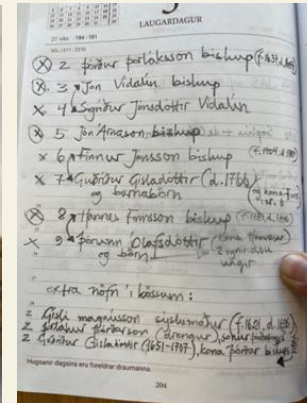 LAUGARDAGUR
27. vika 184-181
SÓL
2 Þórður Þorláksson biskup (f. 1637, d. 1697)
3 Jón Vídalín biskup
4 Sigríður Jónsdóttir Vídalín
5 Jón Árnason biskup
6 Finnur Jónsson biskup
7 Guðríður Gísladóttir (d. 1766)
og barnabörn
8 Hannes Finnsson biskup
9 Þórunn Ólafsdóttir (kona Hannesar
og börn 2 ungir
extra nöfn í kössum:
Gísli Magnússon sýslumaður (f. 1621, d. 1696)
Þorlákur Þórðarson (drengur), sonur
Guðríður Gísladóttir (1651-1707), kona Þórðar biskups
Hugsanir dagsins eru foreldrar draumanna.
204